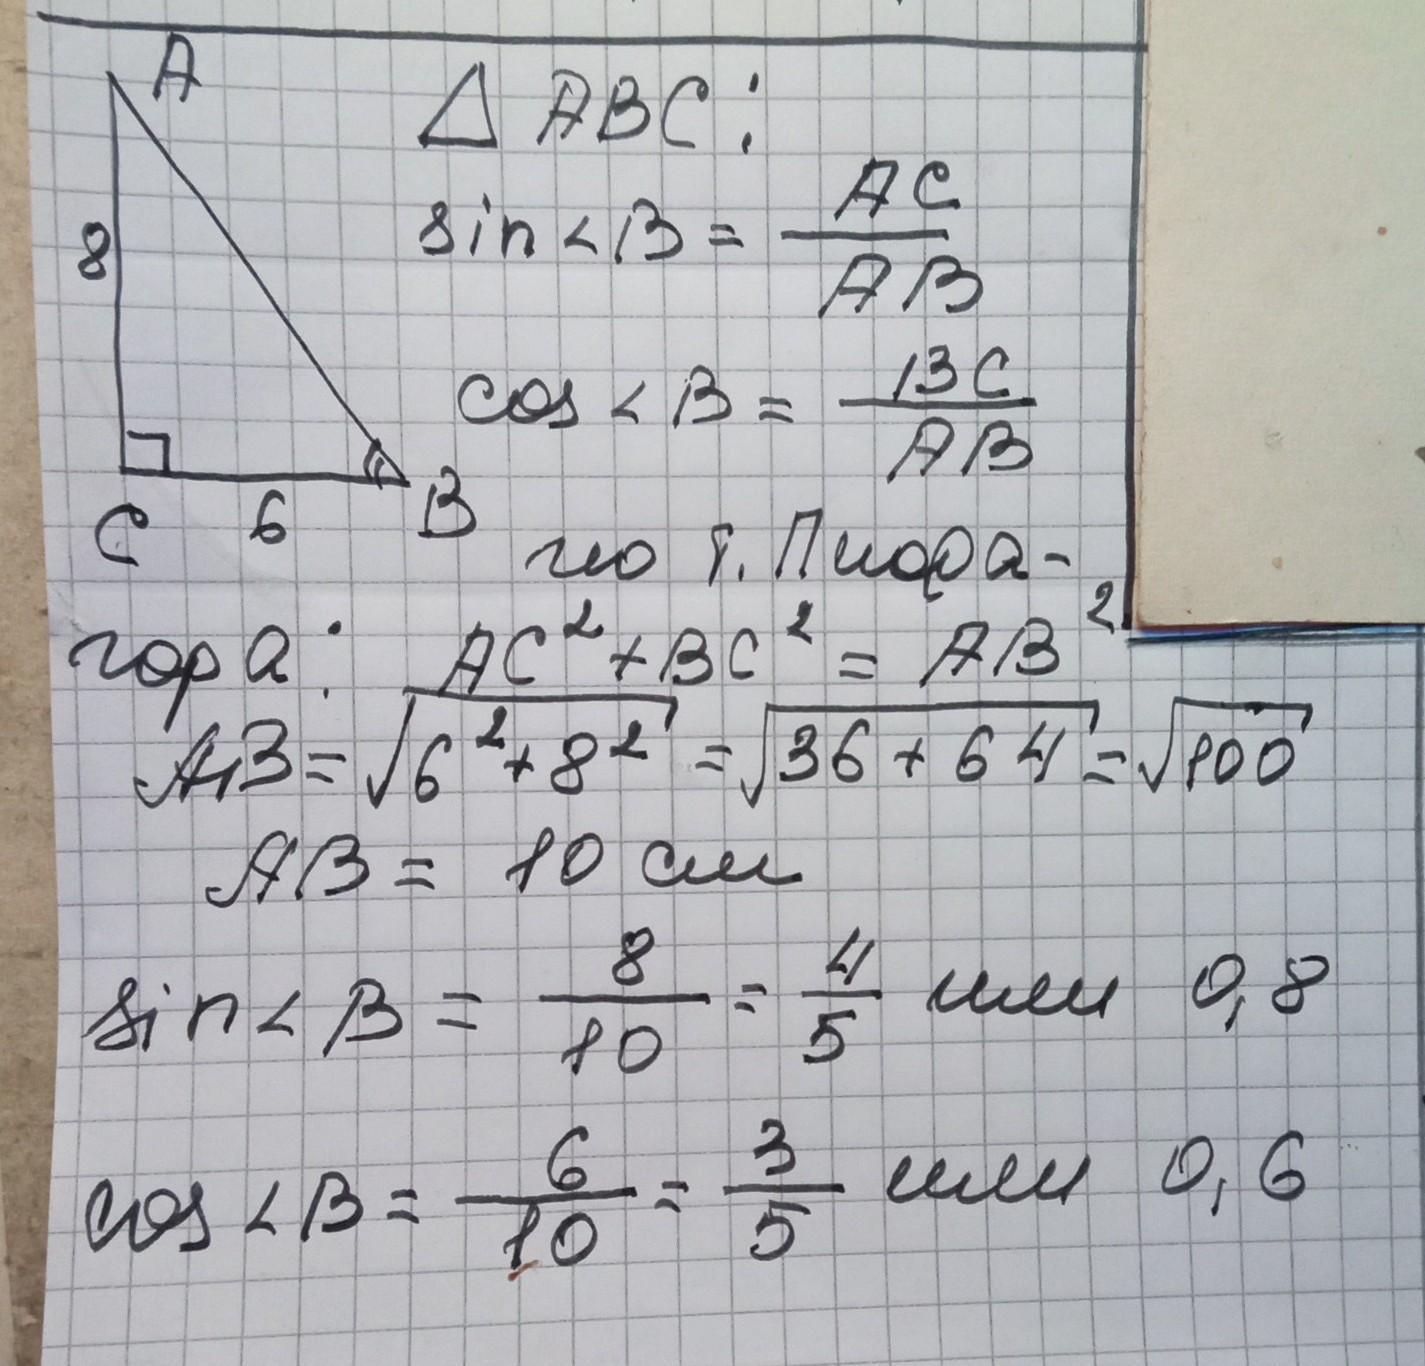 A
△ ABC:
8
sin∠B = AC/AB
cos∠B = BC/AB
C 6 B
по т. Пифа-
гора: AC² + BC² = AB²
AB = √(6² + 8²) = √(36 + 64) = √100
AB = 10 см
sin∠B = 8/10 = 4/5 или 0,8
cos∠B = 6/10 = 3/5 или 0,6